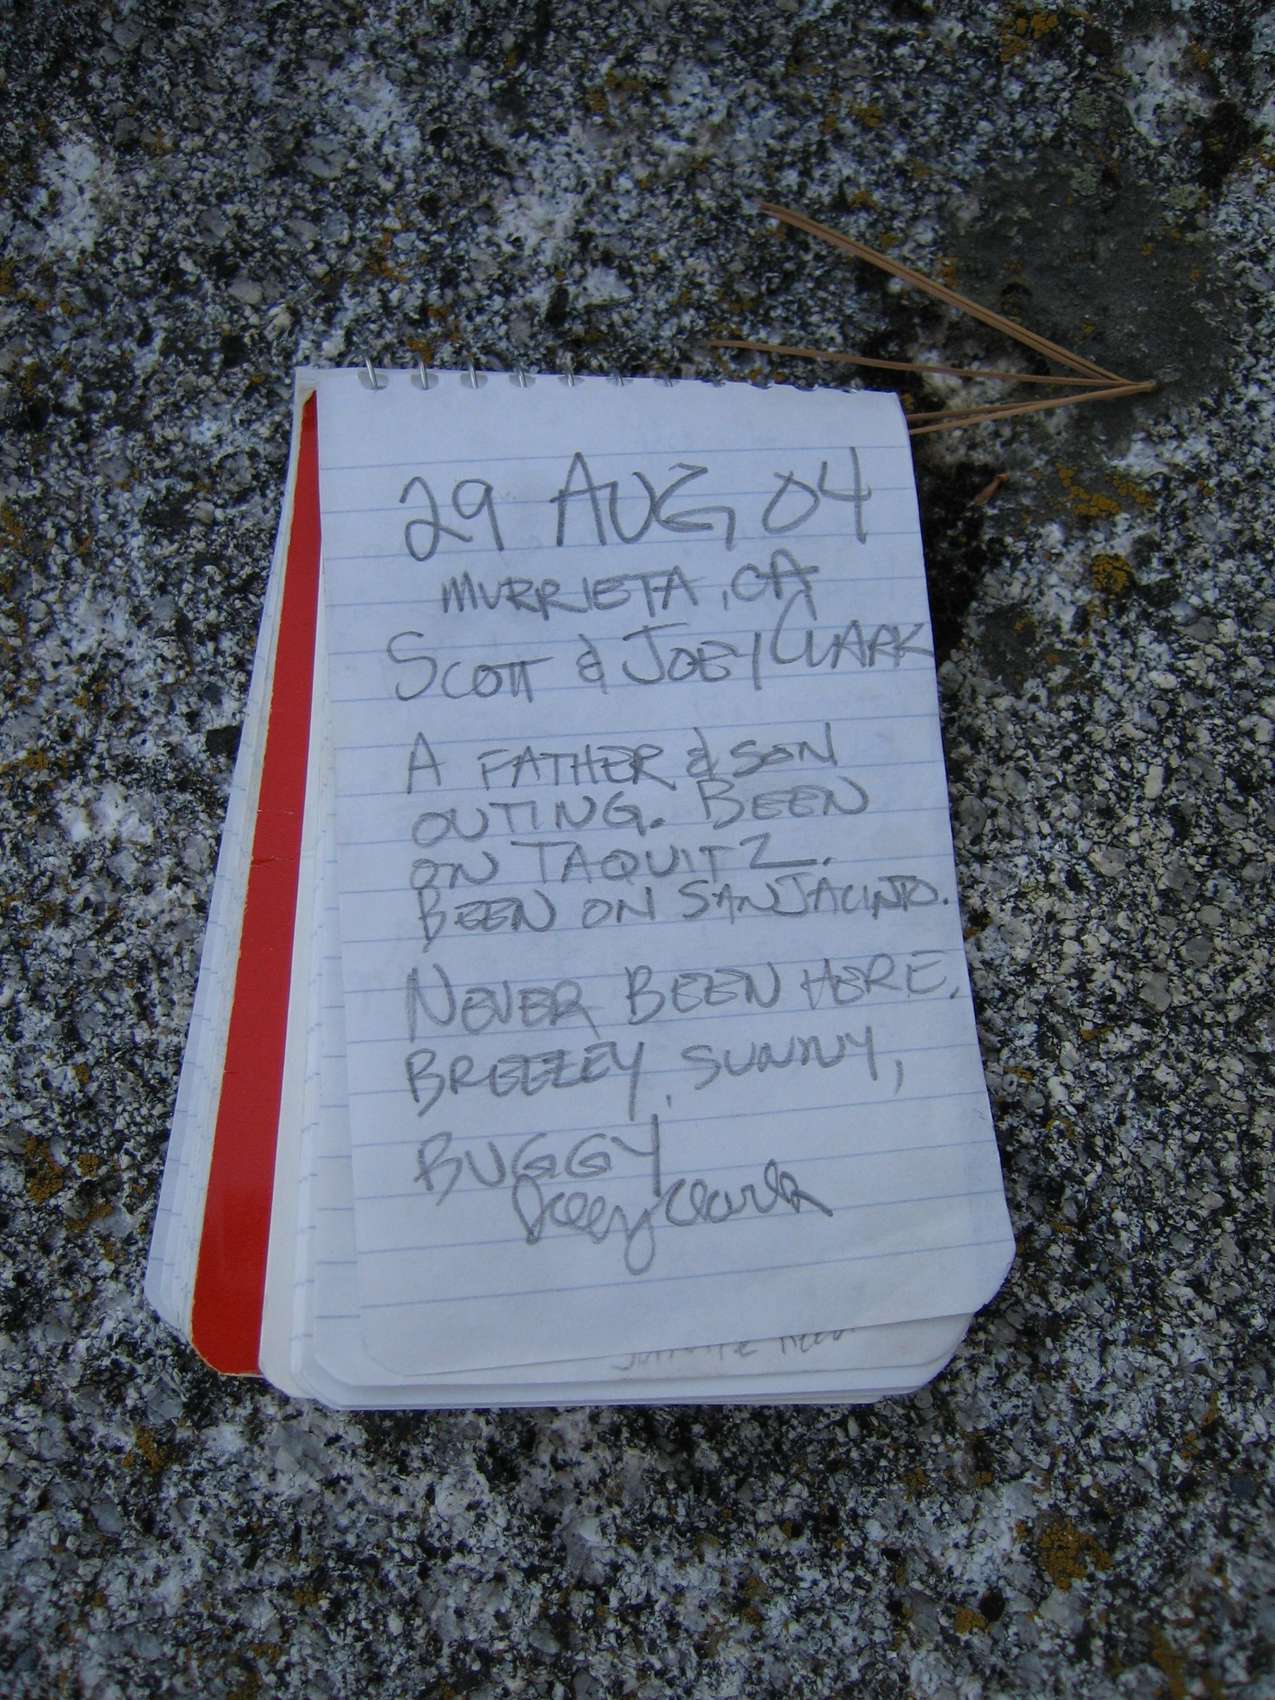 29 AUG 04
MURRIETA, CA
SCOTT & JOEY CLARK
A FATHER & SON
OUTING. BEEN
ON TAQUITZ.
BEEN ON SAN JACINTO.
NEVER BEEN HERE.
BREEZEY, SUNNY,
BUGGY
Joey Clark